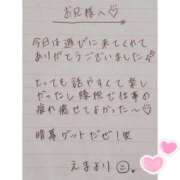 お兄様へ♡
今日は遊びに来てくれて
ありがとうございました
とっても話やすくて楽し
かったし腰痛で仕事の
疲れ癒せてよかった〜♡
晴葛ゲットだぜ!笑
えまより